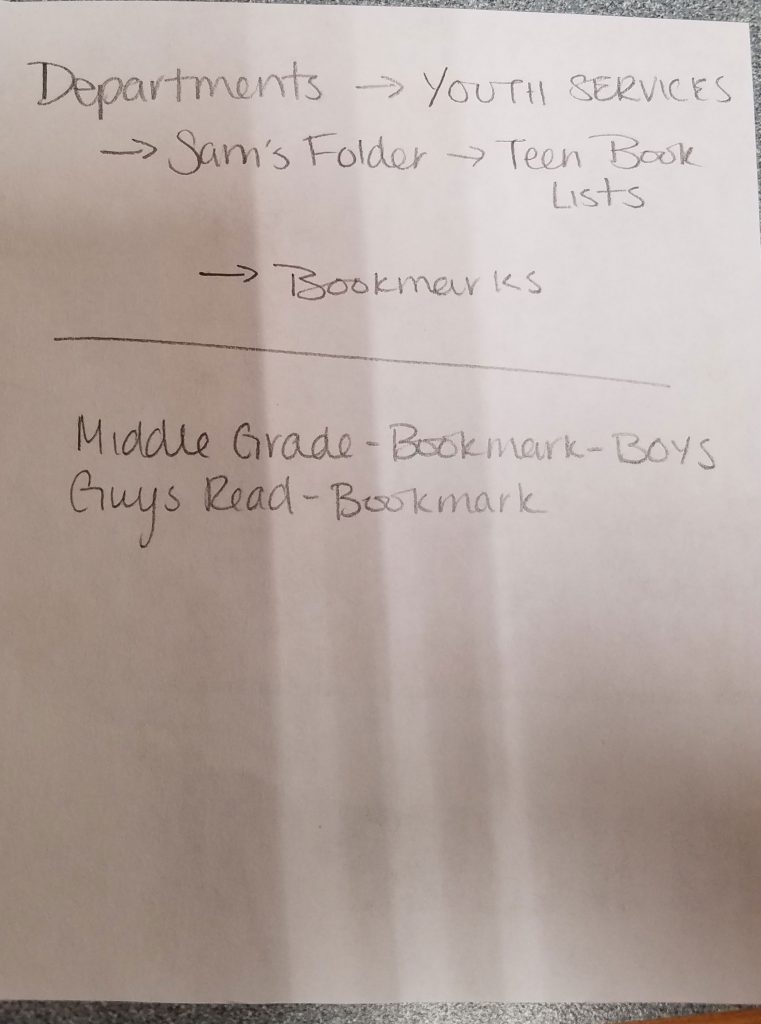 Departments → YOUTH SERVICES
→ Sam's Folder → Teen Book
Lists
→ Bookmarks
Middle Grade - Bookmark - BOYS
Guys Read - Bookmark